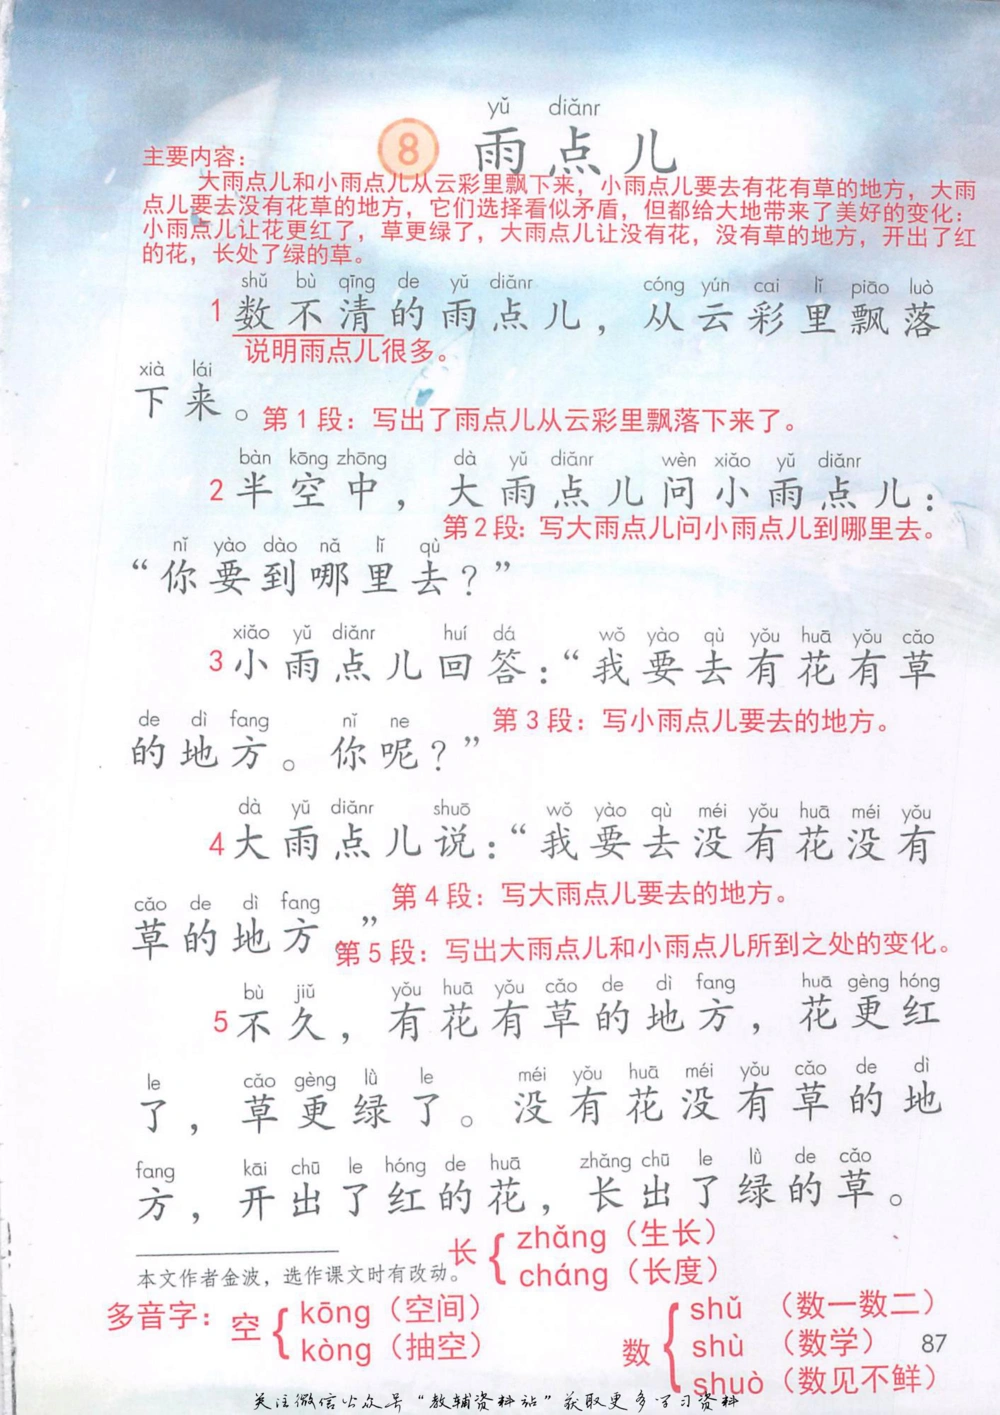 yǔ diǎnr
8 雨点儿
主要内容：
大雨点儿和小雨点儿从云彩里飘下来，小雨点儿要去有花有草的地方，大雨
点儿要去没有花草的地方，它们选择看似矛盾，但都给大地带来了美好的变化：
小雨点儿让花更红了，草更绿了，大雨点儿让没有花，没有草的地方，开出了红
的花，长处了绿的草。
shǔ bù qīng de yǔ diǎnr cóng yún cai lǐ piāo luò
1 数不清的雨点儿，从云彩里飘落
说明雨点儿很多。
xià lái
下来。
第1段：写出了雨点儿从云彩里飘落下来了。
bàn kōng zhōng dà yǔ diǎnr wèn xiǎo yǔ diǎnr
2 半空中，大雨点儿问小雨点儿：
第2段：写大雨点儿问小雨点儿到哪里去。
nǐ yào dào nǎ lǐ qù
“你要到哪里去？”
xiǎo yǔ diǎnr huí dá wǒ yào qù yǒu huā yǒu cǎo
3 小雨点儿回答：“我要去有花有草
de dì fang nǐ ne
的地方。你呢？”
第3段：写小雨点儿要去的地方。
dà yǔ diǎnr shuō wǒ yào qù méi yǒu huā méi yǒu
4 大雨点儿说：“我要去没有花没有
cǎo de dì fang
草的地方 ”
第4段：写大雨点儿要去的地方。
第5段：写出大雨点儿和小雨点儿所到之处的变化。
bù jiǔ yǒu huā yǒu cǎo de dì fang huā gèng hóng
5 不久，有花有草的地方，花更红
le cǎo gèng lǜ le méi yǒu huā méi yǒu cǎo de dì
了，草更绿了。没有花没有草的地
fang kāi chū le hóng de huā zhǎng chū le lǜ de cǎo
方，开出了红的花，长出了绿的草。
长 { zhǎng（生长）
cháng（长度）
本文作者金波，选作课文时有改动。
多音字：空 { kōng（空间）
kòng（抽空）
数 { shǔ （数一数二）
shù （数学）
shuò（数见不鲜）
87
关注微信公众号“教辅资料站”获取更多学习资料